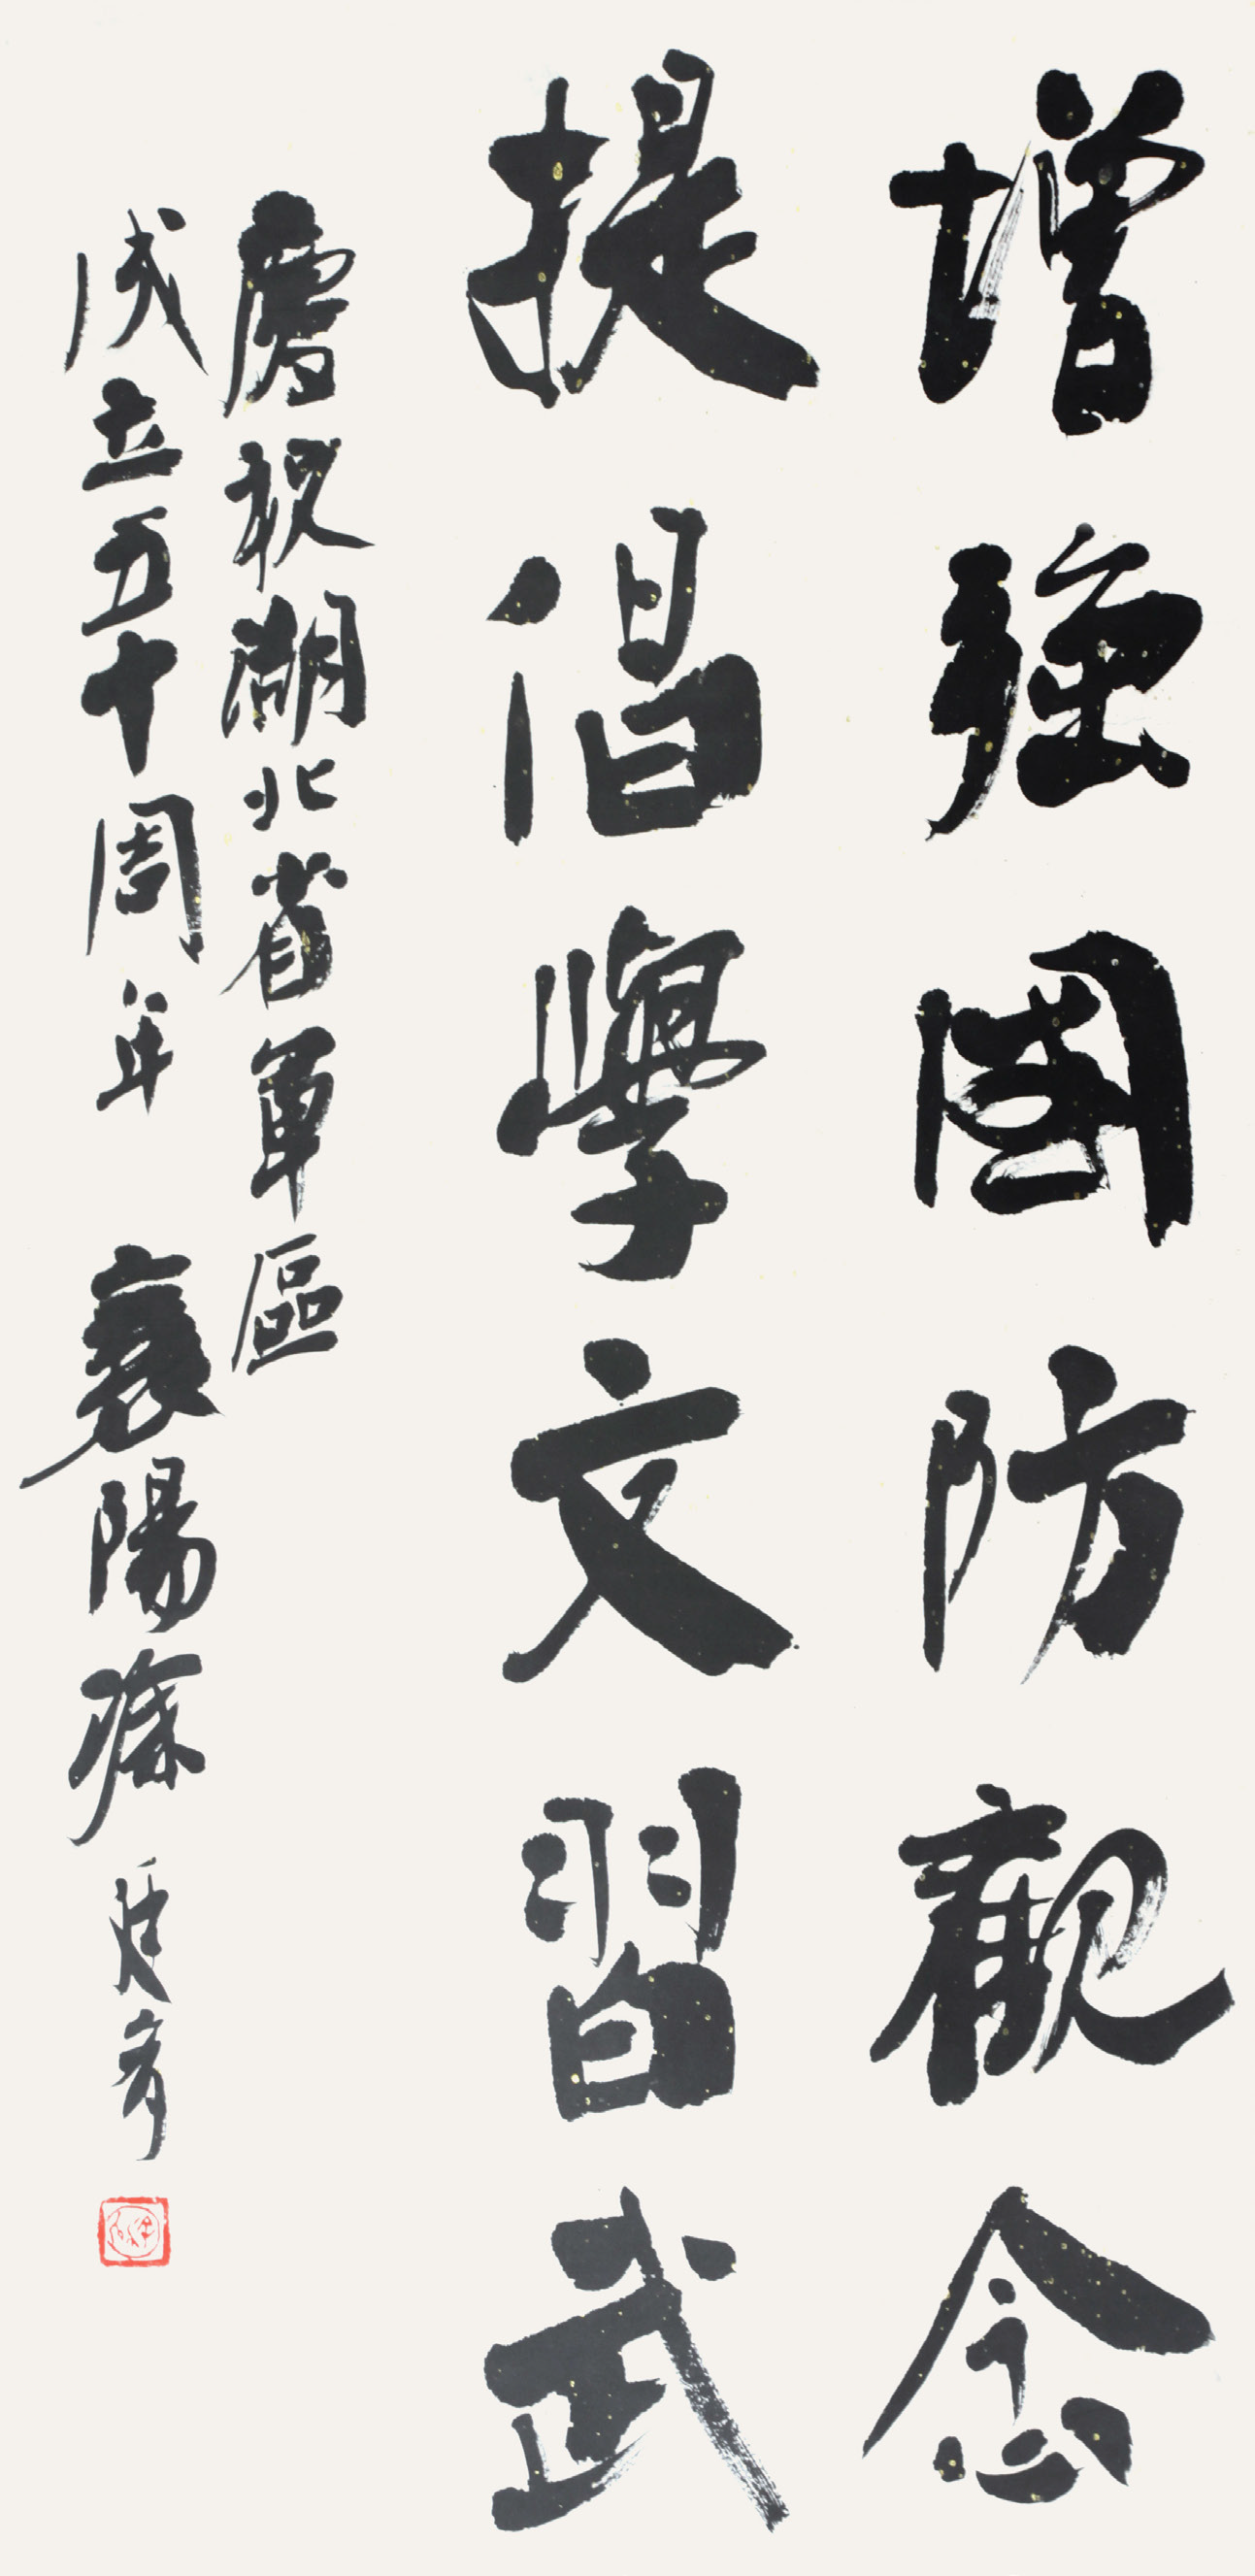 增強國防觀念
提倡學文習武
慶祝湖北省軍區
成立五十周年 襄陽涂廷多